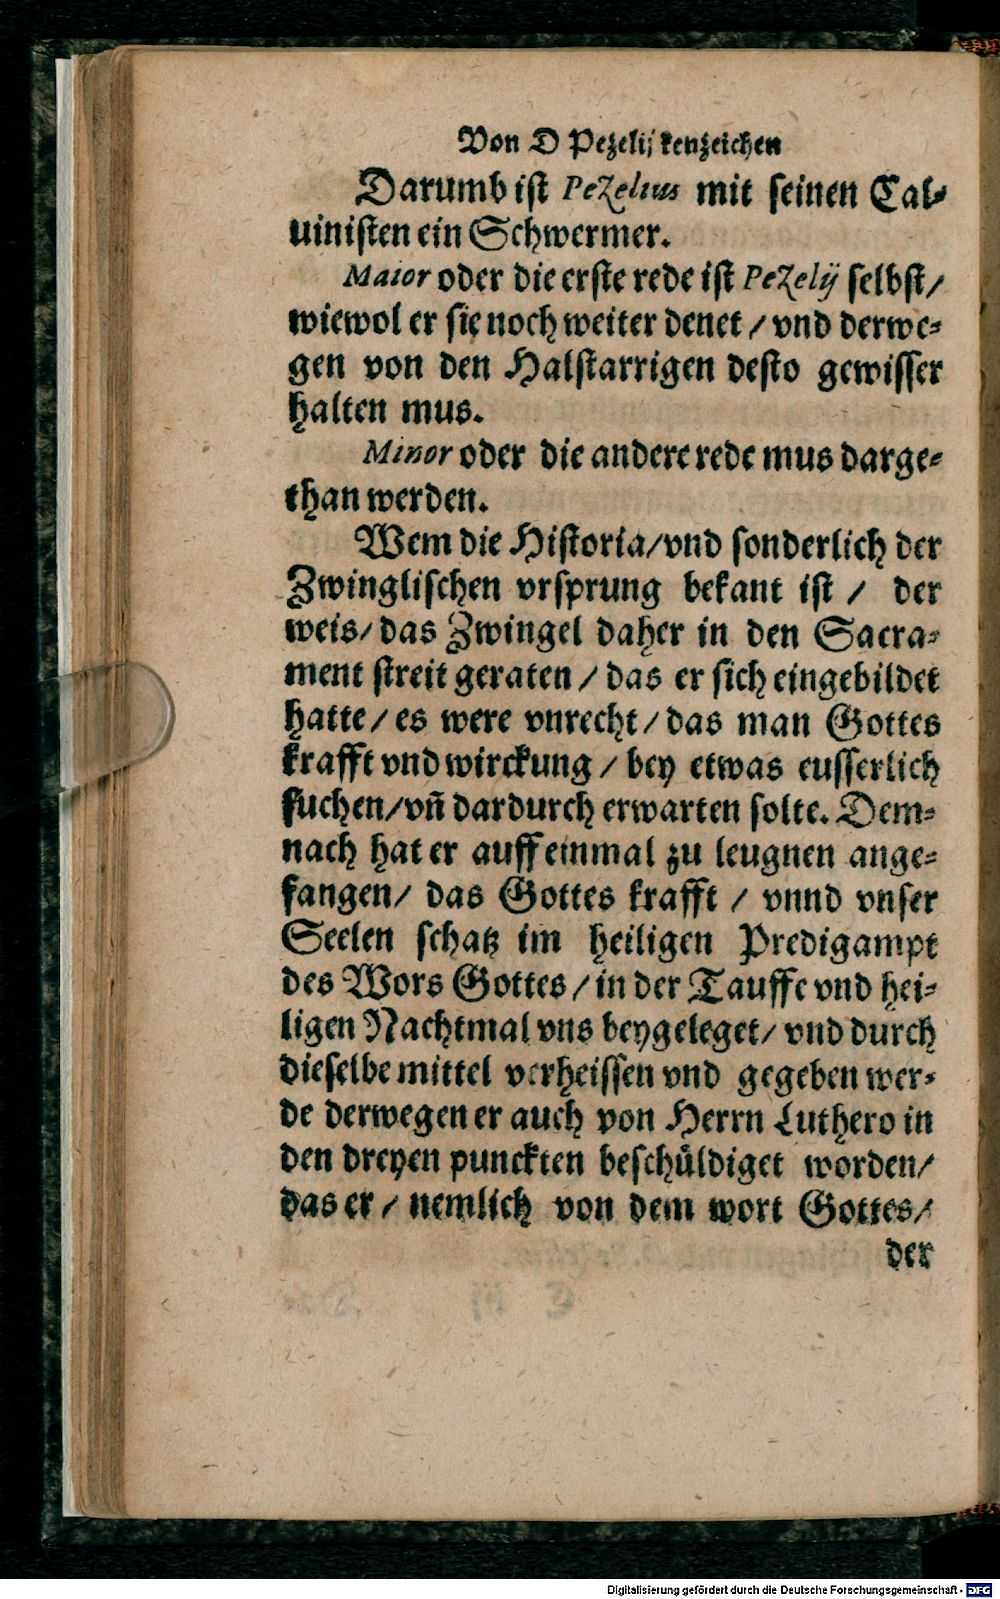 Von D Pezelij kenzeichen
Darumb ist Pezelius mit seinen Cal-
uinisten ein Schwermer.
Maior oder die erste rede ist Pezelij selbst/
wiewol er sie noch weiter denet / vnd derwe-
gen von den Halstarrigen desto gewisser
halten mus.
Minor oder die andere rede mus darge-
than werden.
Wem die Historia/vnd sonderlich der
Zwinglischen vrsprung bekant ist / der
weis/ das Zwingel daher in den Sacra-
ment streit geraten / das er sich eingebildet
hatte/ es were vnrecht/ das man Gottes
krafft vnd wirckung / bey etwas eusserlich
suchen/vñ dardurch erwarten solte. Dem-
nach hat er auff einmal zu leugnen ange-
fangen/ das Gottes krafft / vnnd vnser
Seelen schatz im heiligen Predigampt
des Wors Gottes / in der Tauffe vnd hei-
ligen Nachtmal vns beygeleget/ vnd durch
dieselbe mittel verheissen vnd gegeben wer-
de derwegen er auch von Herrn Luthero in
den dreyen punckten beschüldiget worden/
das er / nemlich von dem wort Gottes/
der
Digitalisierung gefördert durch die Deutsche Forschungsgemeinschaft - DFG